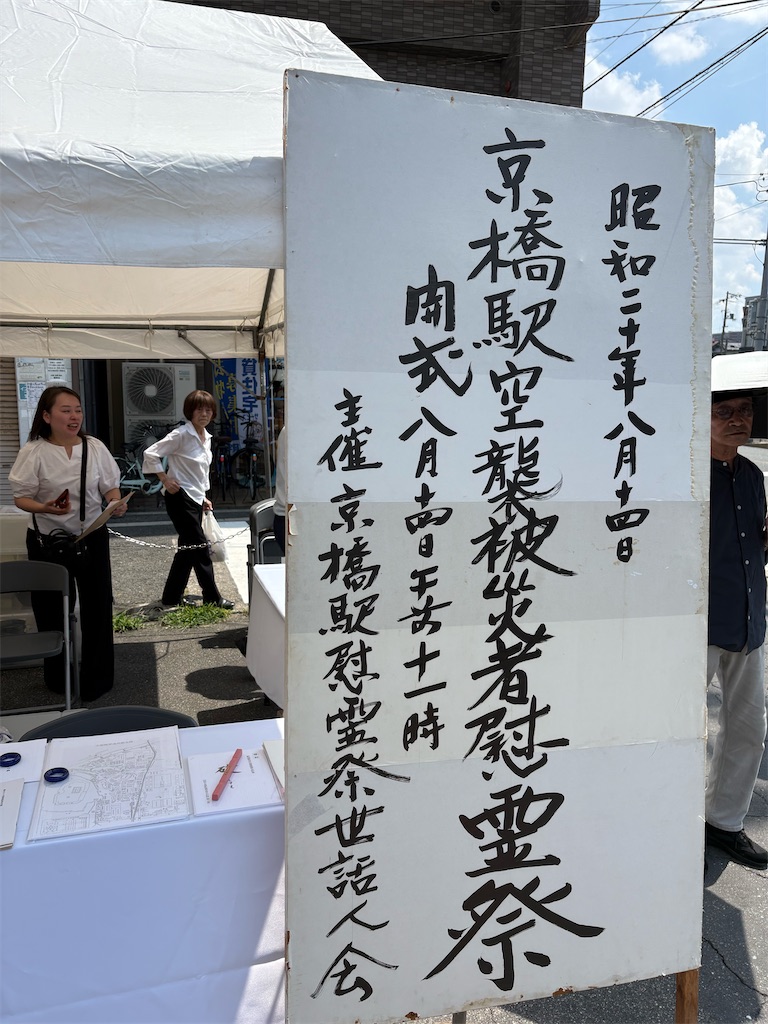 昭和二十年八月十四日
京橋駅空襲被災者慰霊祭
開式 八月十四日午前十一時
主催 京橋駅慰霊祭世話人会
賃住宅